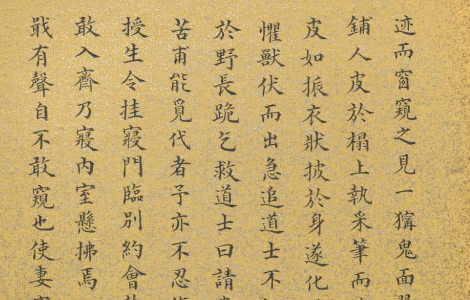 迹而窗窺之見一獰鬼面
鋪人皮於榻上執采筆而
皮如振衣狀披於身遂化
懼獸伏而出急追道士不
於野長跪乞救道士曰請
苦甫能覓代者予亦不忍
授生令挂寢門臨別約會
敢入齋乃寢內室懸拂焉
戢有聲自不敢窺也使妻